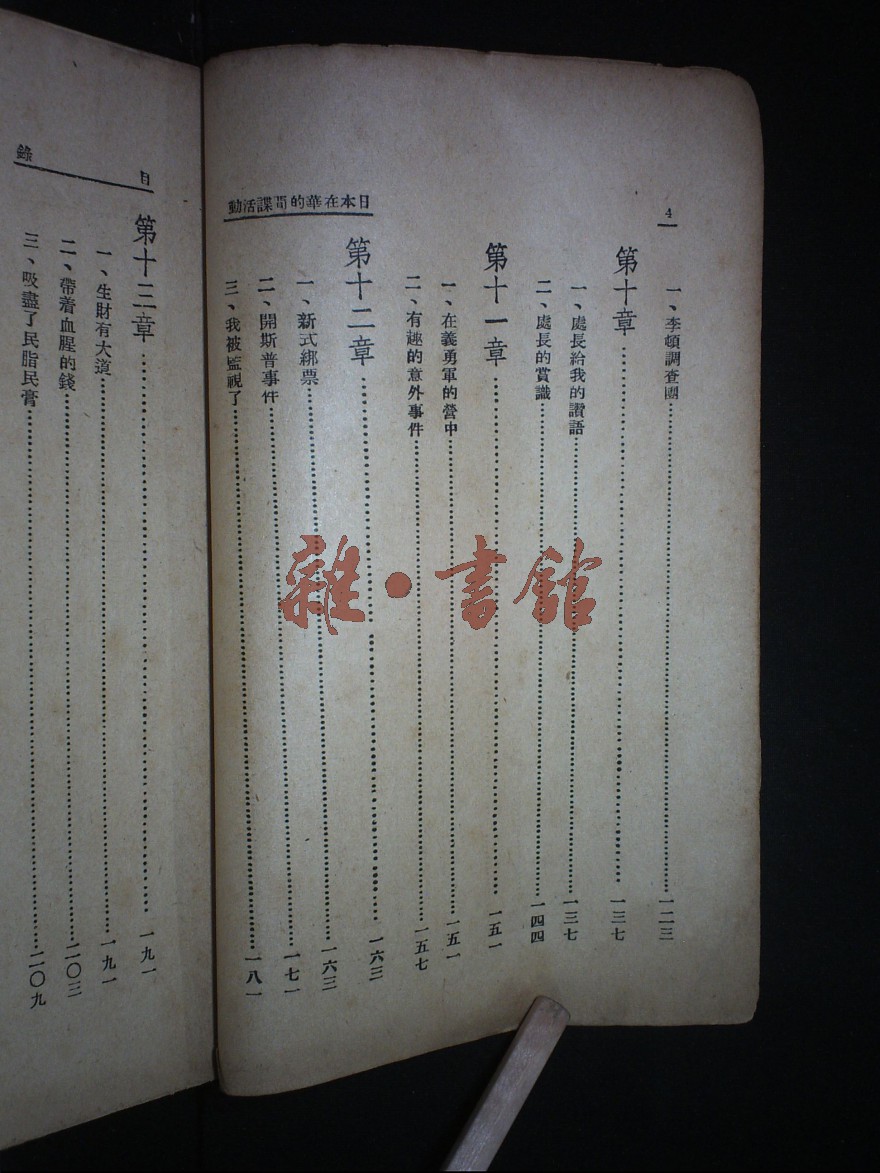 4
日本在華的間諜活動
一、李頓調查團……一二三
第十章……一三七
一、處長給我的讚語……一三七
二、處長的賞識……一四四
第十一章……一五一
一、在義勇軍的營中……一五一
二、有趣的意外事件……一五七
第十二章……一六三
一、新式綁票……一六三
二、開斯普事件……一七一
三、我被監視了……一八一
目錄
第十三章……一九一
一、生財有大道……一九一
二、帶着血腥的錢……二〇三
三、吸盡了民脂民膏……二〇九
雜·書館